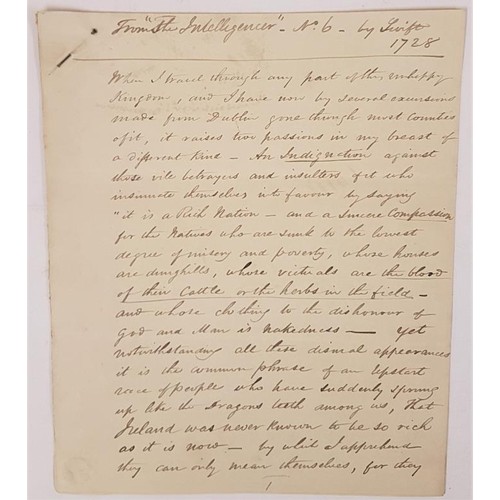 From "The Intelligencer" - No. 6 - by Swift
1728
When I travel through any part of this unhappy
Kingdom, and I have now by several excursions
made from Dublin gone through most Counties
of it, it raises two passions in my breast of
a different kind - An Indignation against
those vile betrayers and insulters of it who
insinuate themselves into favour by saying
"it is a Rich Nation - and a sincere Compassion
for the Natives who are sunk to the lowest
degree of misery and poverty, whose houses
are dunghills, whose victuals are the blood
of their Cattle or the herbs in the field -
and whose clothing to the dishonour of
God and Man is nakedness - Yet
notwithstanding all these dismal appearances
it is the common phrase of an upstart
race of people who have suddenly sprung
up like the Dragons teeth among us, that
Ireland was never known to be so rich
as it is now - by which I apprehend
they can only mean themselves, for they